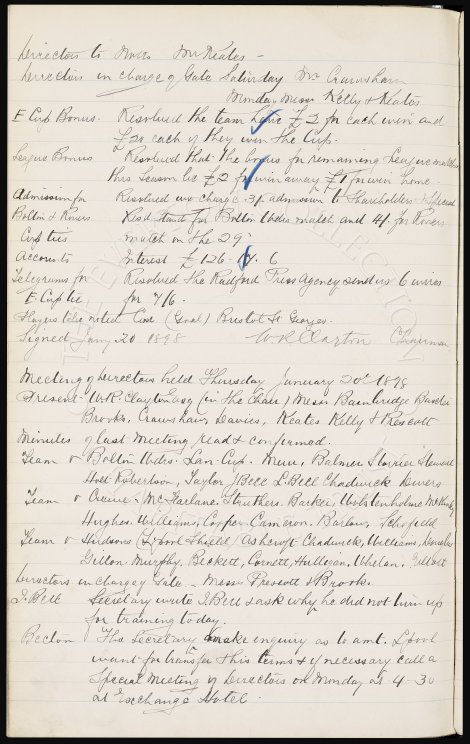 Directors to Notts Mr Keates -
Directors in charge of Gate Saturday Mr Crawshaw
Monday Messrs Kelly & Keates
E Cup Bonus. Resolved the team have £2 for each win and
£20 each if they win the Cup.
League Bonus Resolved that the bonus for remaining League matches
this Season be £2 for win away £1 for win home.
Admission for Resolved we charge 3/- admission to Shareholders & Special
Bolton & Rovers Resd stands for Bolton Wdrs match and 4/- for Rovers
Cup ties match on the 29th
Accounts Interest £126. 6
Telegrams for Resolved the Radford Press Agency send us 6 wires
E. Cup tie for 7/6.
Players Bristol St Georges.
Signed Jany 20 1898 W R Clayton Chairman
Meeting of Directors held Thursday January 20th 1898
Present W.R. Clayton Esq (in the Chair) Messrs Bainbridge Baxter
Brooks, Crawshaw, Davies, Keates Kelly & Prescott
Minutes of last Meeting read & confirmed.
Team v Bolton Wdrs. Lan Cup. Muir, Balmer Storrier Stewart
Holt Robertson, Taylor J Bell L Bell Chadwick Divers
Team v Crewe. McFarlane. Struthers. Barker, Wolstenholme
Hughes. Williams, Cooper Cameron. Barlow, Schofield
Team v (L'pool Shield) Ashcroft Chadwick, Williams,
Murphy. Beckett, Cornett, Hulligan, Whelan,
Directors in charge of Gate. Messrs Prescott & Brooks.
J. Bell Secretary write J. Bell & ask why he did not turn up
for training today.
Becton The Secretary make enquiry as to amt. L'pool
want for transfer & his terms & if necessary call a
Special Meeting of Directors on Monday at 4-30
at Exchange Hotel.